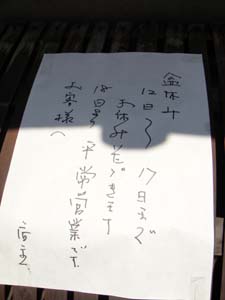 盆休み
12日〜17日まで
お休みいただきます
18日より平常営業です
お客様へ
店主